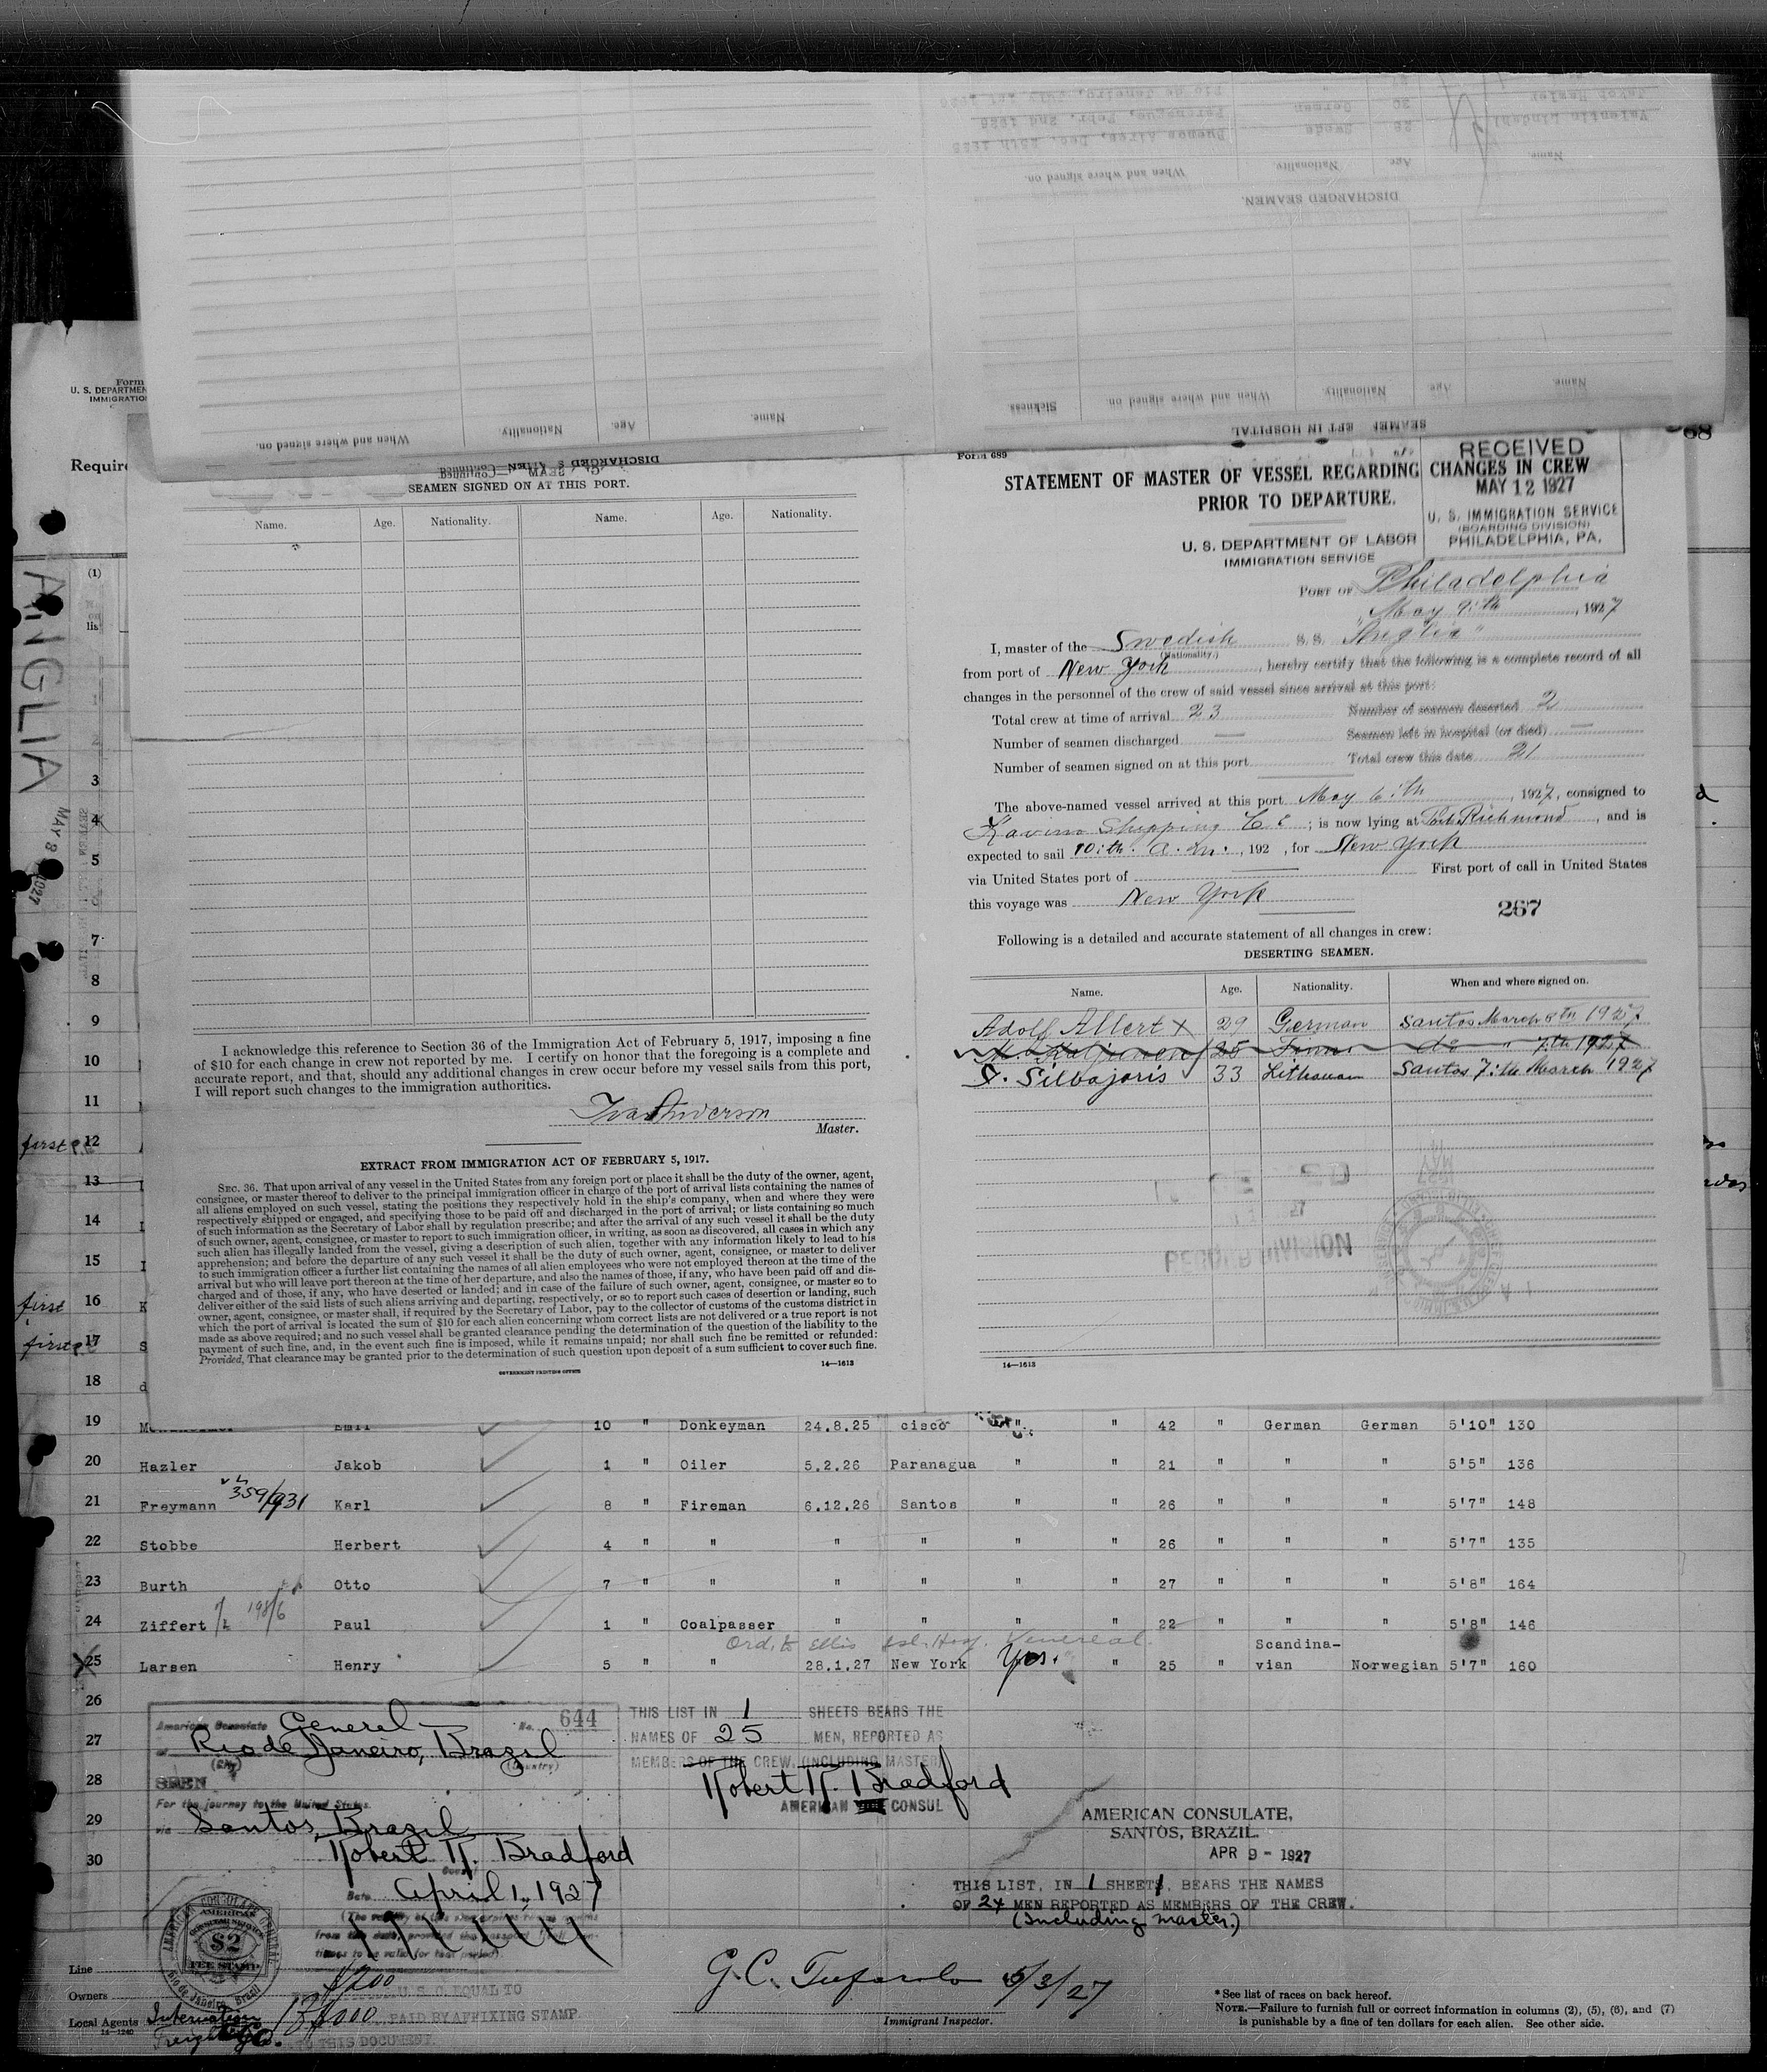 Form
U. S. DEPARTMEN
IMMIGRATIO
Require
ANGLIA
MAY 8 1927
DISCHARGED SEAMEN.
Name. Age. Nationality. When and where signed on.
Valentin Lindahl 28 Swede Buenos Aires, Dec. 28th 1925
Jakob Hazler German Paranagua, Febr. 2nd 1926
Name. Age. Nationality. When and where signed on. Sickness.
SEAMEN LEFT IN HOSPITAL
Name. Age. Nationality. When and where signed on.
DISCHARGED SEAMEN—Continued
SEAMEN SIGNED ON AT THIS PORT.
Name. Age. Nationality. Name. Age. Nationality.
I acknowledge this reference to Section 36 of the Immigration Act of February 5, 1917, imposing a fine
of $10 for each change in crew not reported by me. I certify on honor that the foregoing is a complete and
accurate report, and that, should any additional changes in crew occur before my vessel sails from this port,
I will report such changes to the immigration authorities.
Ivar Anderson
Master.
EXTRACT FROM IMMIGRATION ACT OF FEBRUARY 5, 1917.
SEC. 36. That upon arrival of any vessel in the United States from any foreign port or place it shall be the duty of the owner, agent,
consignee, or master thereof to deliver to the principal immigration officer in charge of the port of arrival lists containing the names of
all aliens employed on such vessel, stating the positions they respectively hold in the ship's company, when and where they were
respectively shipped or engaged, and specifying those to be paid off and discharged in the port of arrival; or lists containing so much
of such information as the Secretary of Labor shall by regulation prescribe; and after the arrival of any such vessel it shall be the duty
of such owner, agent, consignee, or master to report to such immigration officer, in writing, as soon as discovered, all cases in which any
such alien has illegally landed from the vessel, giving a description of such alien, together with any information likely to lead to his
apprehension; and before the departure of any such vessel it shall be the duty of such owner, agent, consignee, or master to deliver
to such immigration officer a further list containing the names of all alien employees who were not employed thereon at the time of the
arrival but who will leave port thereon at the time of her departure, and also the names of those, if any, who have been paid off and dis-
charged and of those, if any, who have deserted or landed; and in case of the failure of such owner, agent, consignee, or master so to
deliver either of the said lists of such aliens arriving and departing, respectively, or so to report such cases of desertion or landing, such
owner, agent, consignee, or master shall, if required by the Secretary of Labor, pay to the collector of customs of the customs district in
which the port of arrival is located the sum of $10 for each alien concerning whom correct lists are not delivered or a true report is not
made as above required; and no such vessel shall be granted clearance pending the determination of the question of the liability to the
payment of such fine, and, in the event such fine is imposed, while it remains unpaid; nor shall such fine be remitted or refunded:
Provided, That clearance may be granted prior to the determination of such question upon deposit of a sum sufficient to cover such fine.
GOVERNMENT PRINTING OFFICE 14—1613
Form 689
STATEMENT OF MASTER OF VESSEL REGARDING CHANGES IN CREW
PRIOR TO DEPARTURE.
RECEIVED
MAY 12 1927
U. S. IMMIGRATION SERVICE
(BOARDING DIVISION)
PHILADELPHIA, PA.
68
U. S. DEPARTMENT OF LABOR
IMMIGRATION SERVICE
PORT OF Philadelphia
May 9:th, 1927
I, master of the Swedish S. S. "Anglia"
(Nationality.)
from port of New York, hereby certify that the following is a complete record of all
changes in the personnel of the crew of said vessel since arrival at this port:
Total crew at time of arrival 23 Number of seamen deserted 2
Number of seamen discharged — Seamen left in hospital (or died) —
Number of seamen signed on at this port Total crew this date 21
The above-named vessel arrived at this port May 6:th, 1927, consigned to
Shipping Co; is now lying at Port Richmond, and is
expected to sail 10:th a.m., 192 , for New York
via United States port of First port of call in United States
this voyage was New York
267
Following is a detailed and accurate statement of all changes in crew:
DESERTING SEAMEN.
Name. Age. Nationality. When and where signed on.
Adolf Allert x 29 German Santos March 8th 1927
25 do " 7:th 1927
S. Silbajoris 33 Lithauan Santos 7:th March 1927
RECORD DIVISION
14—1613
(1)
3
4
5
7
8
9
10
11
first 12
13
14
15
first 16
first 17
18
19 Emil 10 " Donkeyman 24.8.25 cisco " " 42 " German German 5'10" 130
20 Hazler Jakob 1 " Oiler 5.2.26 Paranagua " " 21 " " " 5'5" 136
21 Freymann 359/931 Karl 8 " Fireman 6.12.26 Santos " " 26 " " " 5'7" 148
22 Stobbe Herbert 4 " " " " " " 26 " " " 5'7" 135
23 Burth Otto 7 " " " " " " 27 " " " 5'8" 164
24 Ziffert 198/6 Paul 1 " Coalpasser " " " " 22 " " " 5'8" 146
Ord. to Ellis Isl. Hosp. Venereal
25 Larsen Henry 5 " " 28.1.27 New York Yes. " 25 " Scandina-
vian Norwegian 5'7" 160
26
27
28
29
30
American Consulate General No. 644
at Rio de Janeiro, Brazil
(City) (Country)
SEEN
For the journey to the United States.
via Santos, Brazil
Robert R. Bradford
Consul
Date April 1, 1927
THIS LIST IN 1 SHEETS BEARS THE
NAMES OF 25 MEN, REPORTED AS
MEMBERS OF THE CREW, (INCLUDING MASTER)
Robert R. Bradford
AMERICAN VICE CONSUL
AMERICAN CONSULATE,
SANTOS, BRAZIL.
APR 9 - 1927
THIS LIST, IN 1 SHEET, BEARS THE NAMES
OF 24 MEN REPORTED AS MEMBERS OF THE CREW.
(Including master.)
AMERICAN CONSULATE GENERAL
AMERICAN
$2
FEE STAMP
Rio de Janeiro, Brazil
U. S. C. EQUAL TO
PAID BY AFFIXING STAMP
TO THIS DOCUMENT.
Line
Owners
Local Agents Internation Freighting Co.
14—1240
G. C. 5/3/27
Immigrant Inspector.
* See list of races on back hereof.
NOTE.—Failure to furnish full or correct information in columns (2), (5), (6), and (7)
is punishable by a fine of ten dollars for each alien. See other side.